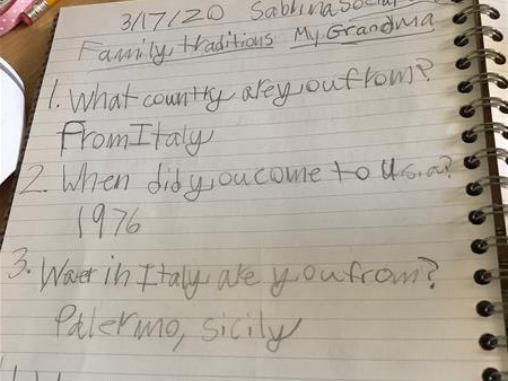 3/17/20 Sabrina Social
Family traditions My Grandma
1. What country are you from?
From Italy
2. When did you come to U.S.a?
1976
3. Waer in Italy are you from?
Palermo, sicily